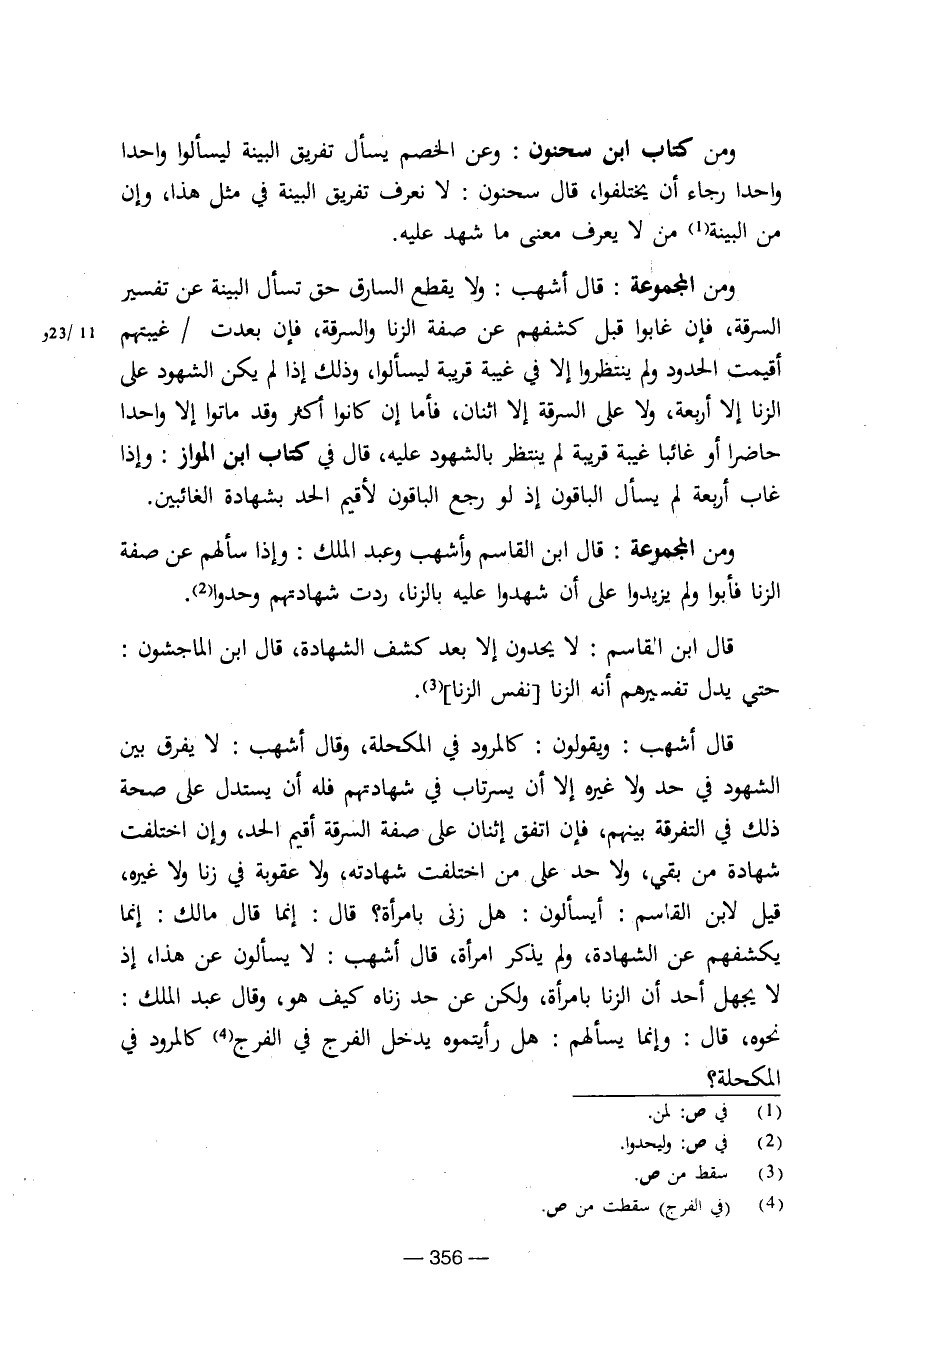 ومن كتاب ابن سحنون : وعن الخصم يسأل تفريق البينة ليسألوا واحدا
واحدا رجاء أن يختلفوا، قال سحنون : لا نعرف تفريق البينة في مثل هذا، وإن
من البينة(1) من لا يعرف معنى ما شهد عليه.
ومن المجموعة : قال أشهب : ولا يقطع السارق حق تسأل البينة عن تفسير
السرقة، فإن غابوا قبل كشفهم عن صفة الزنا والسرقة، فإن بعدت / غيبتهم 11 /23و
أقيمت الحدود ولم ينتظروا إلا في غيبة قريبة ليسألوا، وذلك إذا لم يكن الشهود على
الزنا إلا أربعة، ولا على السرقة إلا اثنان، فأما إن كانوا أكثر وقد ماتوا إلا واحدا
حاضرا أو غائبا غيبة قريبة لم ينتظر بالشهود عليه، قال في كتاب ابن المواز : وإذا
غاب أربعة لم يسأل الباقون إذ لو رجع الباقون لأقيم الحد بشهادة الغائبين.
ومن المجموعة : قال ابن القاسم وأشهب وعبد الملك : وإذا سألهم عن صفة
الزنا فأبوا ولم يزيدوا على أن شهدوا عليه بالزنا، ردت شهادتهم وحدوا(2).
قال ابن القاسم : لا يحدون إلا بعد كشف الشهادة، قال ابن الماجشون :
حتي يدل تفسيرهم أنه الزنا [نفس الزنا](3).
قال أشهب : ويقولون : كالمرود في المكحلة، وقال أشهب : لا يفرق بين
الشهود في حد ولا غيره إلا أن يسترتاب في شهادتهم فله أن يستدل على صحة
ذلك في التفرقة بينهم، فإن اتفق إثنان على صفة السرقة أقيم الحد، وإن اختلفت
شهادة من بقي، ولا حد على من اختلفت شهادته، ولا عقوبة في زنا ولا غيره،
قيل لابن القاسم : أيسألون : هل زنى بامرأة؟ قال : إنما قال مالك : إنما
يكشفهم عن الشهادة، ولم يذكر امرأة، قال أشهب : لا يسألون عن هذا، إذ
لا يجهل أحد أن الزنا بامرأة، ولكن عن حد زناه كيف هو، وقال عبد الملك :
نحوه، قال : وإنما يسألهم : هل رأيتموه يدخل الفرج في الفرج(4) كالمرود في
المكحلة؟
(1) في ص: لمن.
(2) في ص: وليحدوا.
(3) سقط من ص.
(4) (في الفرج) سقطت من ص.
— 356 —